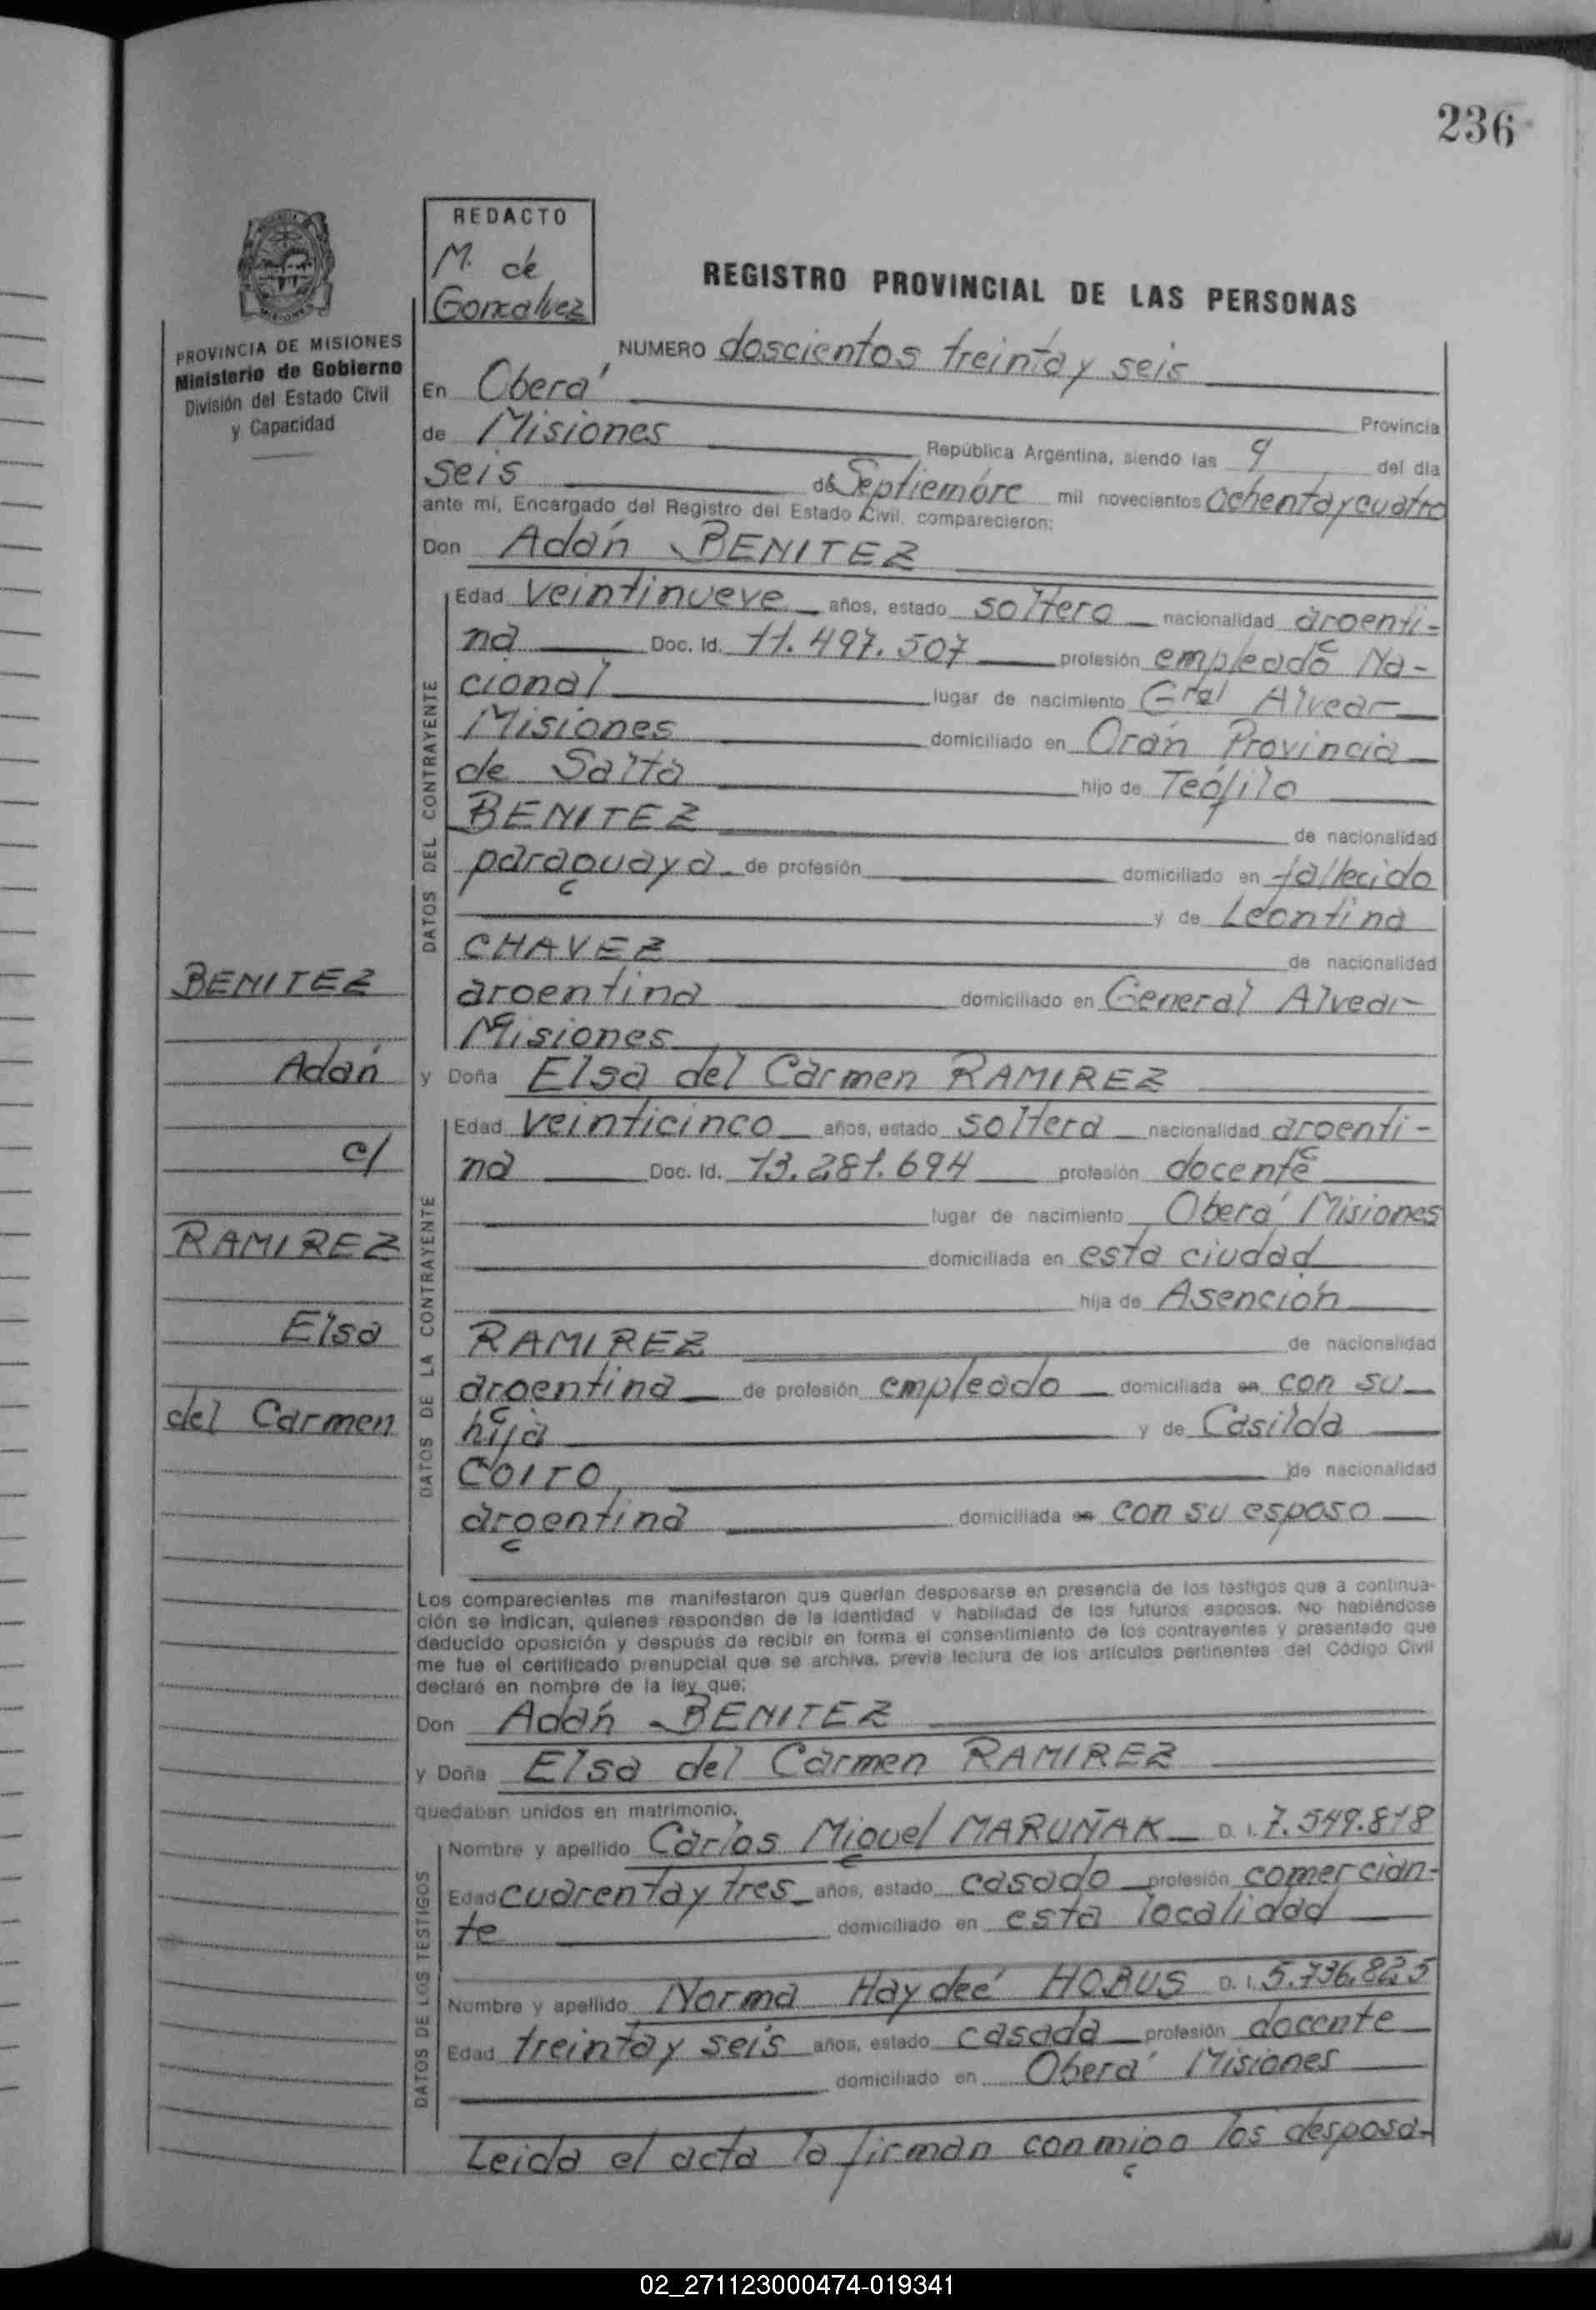 236
REDACTO
M. de
Gonzalez
REGISTRO PROVINCIAL DE LAS PERSONAS
PROVINCIA DE MISIONES
Ministerio de Gobierno
División del Estado Civil
y Capacidad
NUMERO doscientos treinta y seis
En Oberá Provincia
de Misiones República Argentina, siendo las 9 del día
seis de Septiembre mil novecientos ochenta y cuatro
ante mí, Encargado del Registro del Estado Civil, comparecieron:
Don Adán BENITEZ
DATOS DEL CONTRAYENTE
Edad veintinueve años, estado soltero nacionalidad argenti-
na Doc. Id. 11.497.507 profesión empleado Na-
cional lugar de nacimiento Gral Alvear
Misiones domiciliado en Orán Provincia
de Salta hijo de Teófilo
BENITEZ de nacionalidad
paraguaya de profesión domiciliado en fallecido
y de Leontina
CHAVEZ de nacionalidad
argentina domiciliado en General Alvear
Misiones
BENITEZ
Adán
c/
RAMIREZ
Elsa
del Carmen
y Doña Elsa del Carmen RAMIREZ
DATOS DE LA CONTRAYENTE
Edad veinticinco años, estado soltera nacionalidad argenti-
na Doc. Id. 13.281.694 profesión docente
lugar de nacimiento Oberá Misiones
domiciliada en esta ciudad
hija de Asención
RAMIREZ de nacionalidad
argentina de profesión empleado domiciliada en con su
hija y de Casilda
COITO de nacionalidad
argentina domiciliada en con su esposo
Los comparecientes me manifestaron que querían desposarse en presencia de los testigos que a continua-
ción se indican, quienes responden de la identidad y habilidad de los futuros esposos. No habiéndose
deducido oposición y después de recibir en forma el consentimiento de los contrayentes y presentado que
me fue el certificado prenupcial que se archiva, previa lectura de los artículos pertinentes del Código Civil
declaré en nombre de la ley que:
Don Adán BENITEZ
y Doña Elsa del Carmen RAMIREZ
quedaban unidos en matrimonio.
DATOS DE LOS TESTIGOS
Nombre y apellido Carlos Miguel MARUÑAK D. I. 7.549.818
Edad cuarenta y tres años, estado casado profesión comercian-
te domiciliado en esta localidad
Nombre y apellido Norma Haydeé HOBUS D. I. 5.736.825
Edad treinta y seis años, estado casada profesión docente
domiciliado en Oberá Misiones
Leida el acta la firman conmigo los desposa-
02_271123000474-019341